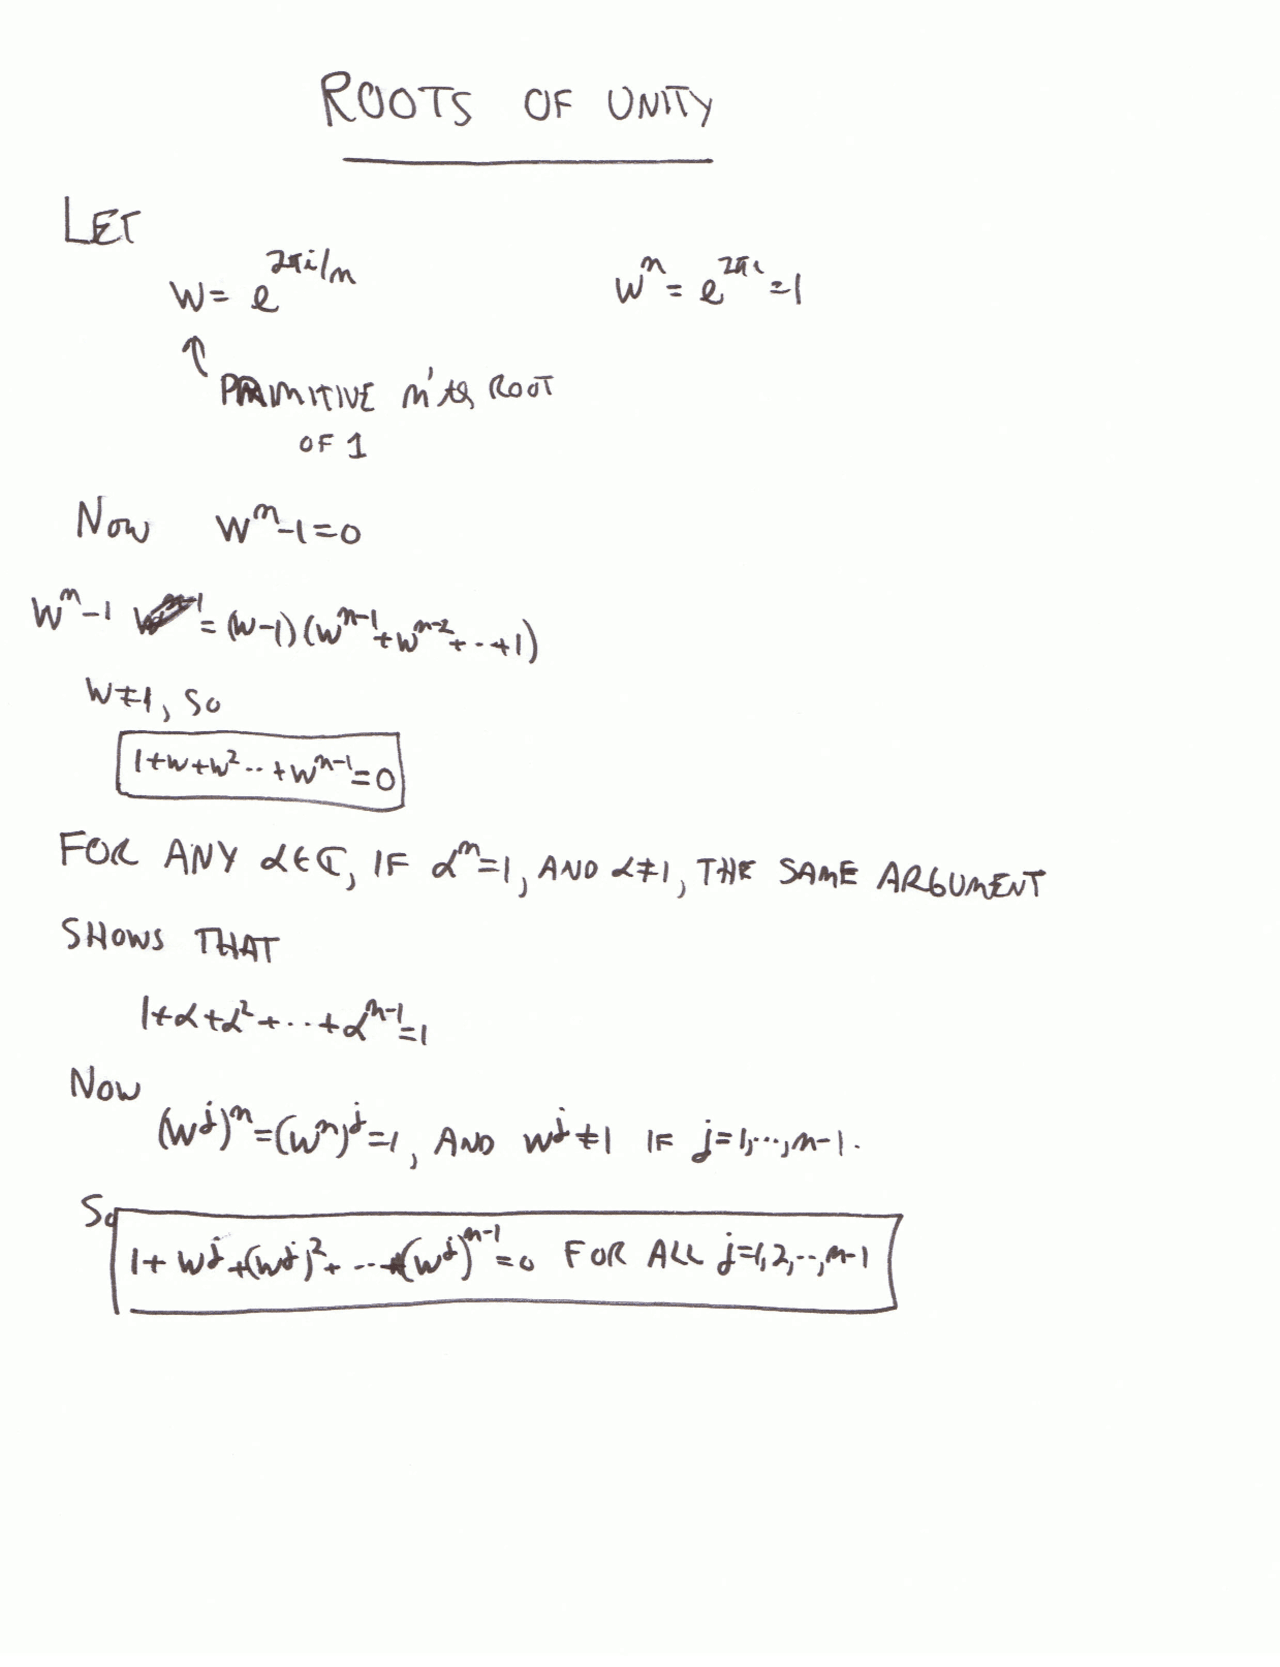 ROOTS OF UNITY
LET
w = e^{2πi/n}    w^n = e^{2πi} = 1
↑
PRIMITIVE n'th ROOT
OF 1
Now w^n - 1 = 0
w^n - 1 = (w-1)(w^{n-1} + w^{n-2} + ··· + 1)
w ≠ 1, So
1 + w + w^2 ·· + w^{n-1} = 0
FOR ANY α ∈ ℂ, IF α^n = 1, AND α ≠ 1, THE SAME ARGUMENT
SHOWS THAT
1 + α + α^2 + ··· + α^{n-1} = 1
Now
(w^j)^n = (w^n)^j = 1, AND w^j ≠ 1 IF j = 1, ···, n-1.
So
1 + w^j + (w^j)^2 + ··· + (w^j)^{n-1} = 0 FOR ALL j = 1, 2, ··, n-1